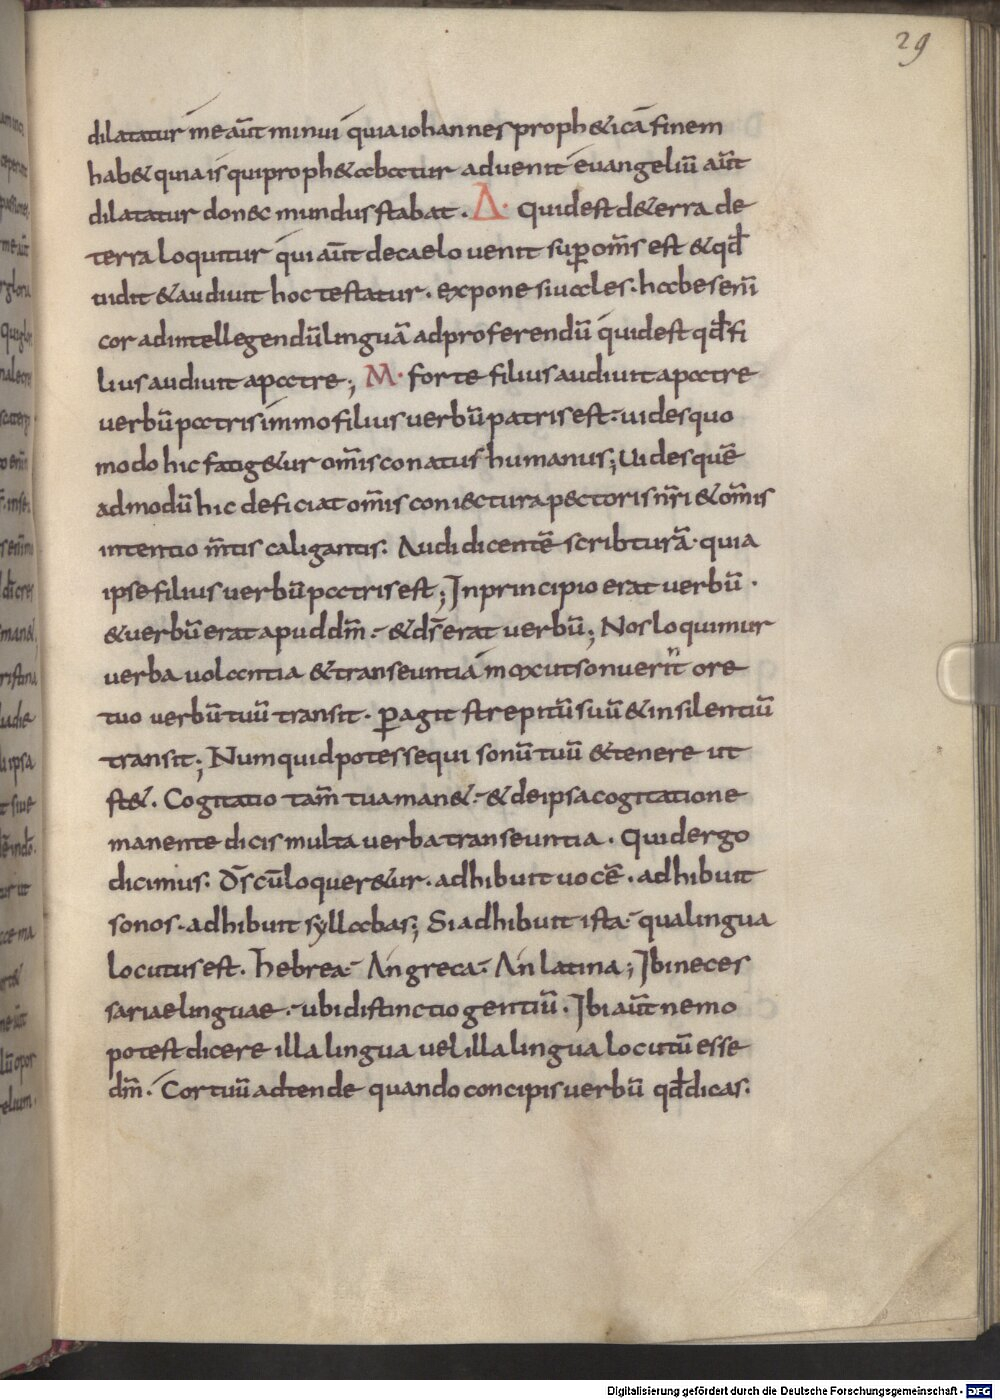 29
dilatatur me aūt minui quia iohannes proph&icā finem
hab& quia is qui proph&abatur advenit evangeliū aūt
dilatatur donec mundus stabat . Δ · Quid est d&erra de
terra loquitur qui aūt de caelo venit sup om̄s est & qđ
vidit & audivit hoc testatur . expone si vales . habes eni̅
cor ad intellegendū linguā ad proferendū quid est qđ fi
lius audivit a patre ; M · forte filius audivit a patre
verbū patris immo filius verbū patris est : vides quo
modo hic fatig&ur om̄is conatus humanus ; Vides quē
admodū hic deficiat om̄is coniectura pectoris nr̄i & om̄is
intentio m̄tis caligantis . Audi dicentē scribturā · quia
ipse filius verbū patris est ; In principio erat verbū .
& verbū erat apud dm̄ . & ds̄ erat verbū ; Nos loquimur
verba volantia & transeuntia mox ut sonuerīt ore
tuo verbū tuū transit . pagit strepitū suū & in silentiū
transit ; Numquid potes sequi sonū tuū & tenere ut
st& . Cogitatio tam̄ tua man& . & de ipsa cogitatione
manente dicis multa verba transeuntia . Quid ergo
dicimus . Ds̄ cū loquer&ur . adhibuit vocē . adhibuit
sonos . adhibuit syllabas ; Si adhibuit ista . qua lingua
locutus est . hebrea . An greca . An latina ; Ibi neces
sariae linguae . ubi distinctio gentiū . Ibi aūt nemo
potest dicere illa lingua vel illa lingua locutū esse
dm̄ . Cor tuū adtende quando concipis verbū qđ dicas .
Digitalisierung gefördert durch die Deutsche Forschungsgemeinschaft - DFG